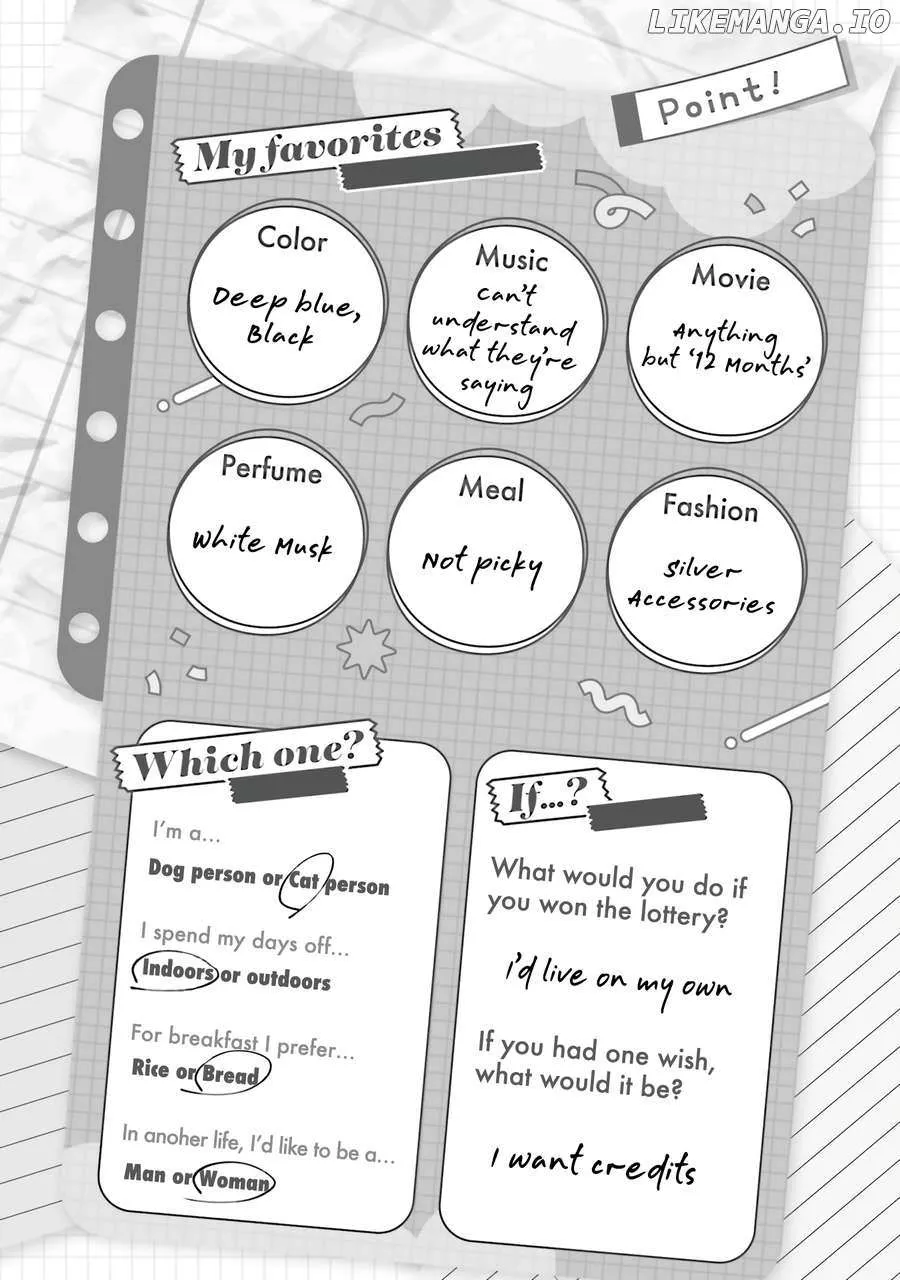 LIKEMANGA.IO
Point!
My favorites
Color
Deep blue,
Black
Music
can't
understand
what they're
saying
Movie
Anything
but '12 Months'
Perfume
White Musk
Meal
Not picky
Fashion
Silver
Accessories
Which one?
I'm a...
Dog person or Cat person
I spend my days off...
Indoors or outdoors
For breakfast I prefer...
Rice or Bread
In anoher life, I'd like to be a...
Man or Woman
If...?
What would you do if
you won the lottery?
i'd live on my own
If you had one wish,
what would it be?
I want credits